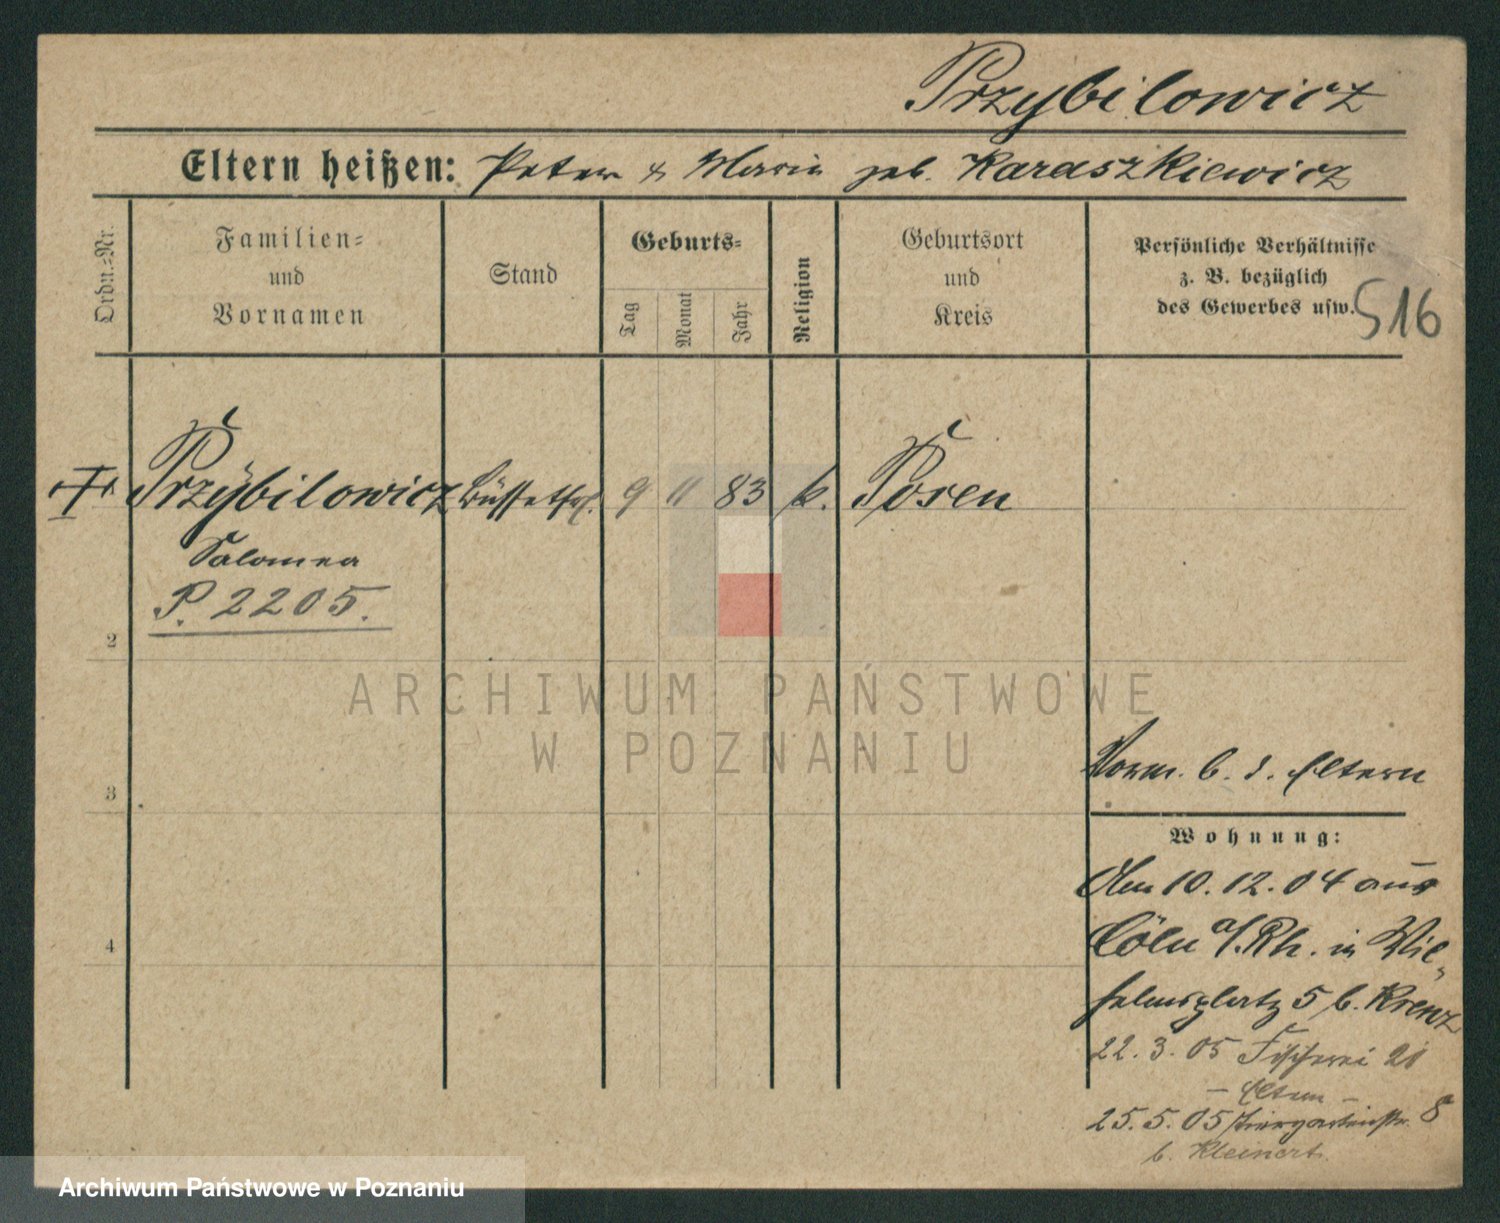 Przybilowicz
Eltern heißen: Peter & Maria geb. Karaszkiewicz
Ordn.-Nr.
Familien-
und
Vornamen
Stand
Geburts-
Tag
Monat
Jahr
Religion
Geburtsort
und
Kreis
Persönliche Verhältnisse
z. B. bezüglich
des Gewerbes usw.
516
Przybilowicz Büffetfrl. 9 11 83 k. Posen
Salomea
P. 2205.
2
ARCHIWUM PAŃSTWOWE
W POZNANIU
3
Vorm. b. d. Eltern
Wohnung:
Am 10. 12. 04 aus
Cöln a/Rh. in Wil-
helmsplatz 5 b. Krenz
4
22. 3. 05 Fischerei 21
- Eltern -
25. 5. 05 Tiergartenstr. 8
b. Kleinert.
Archiwum Państwowe w Poznaniu